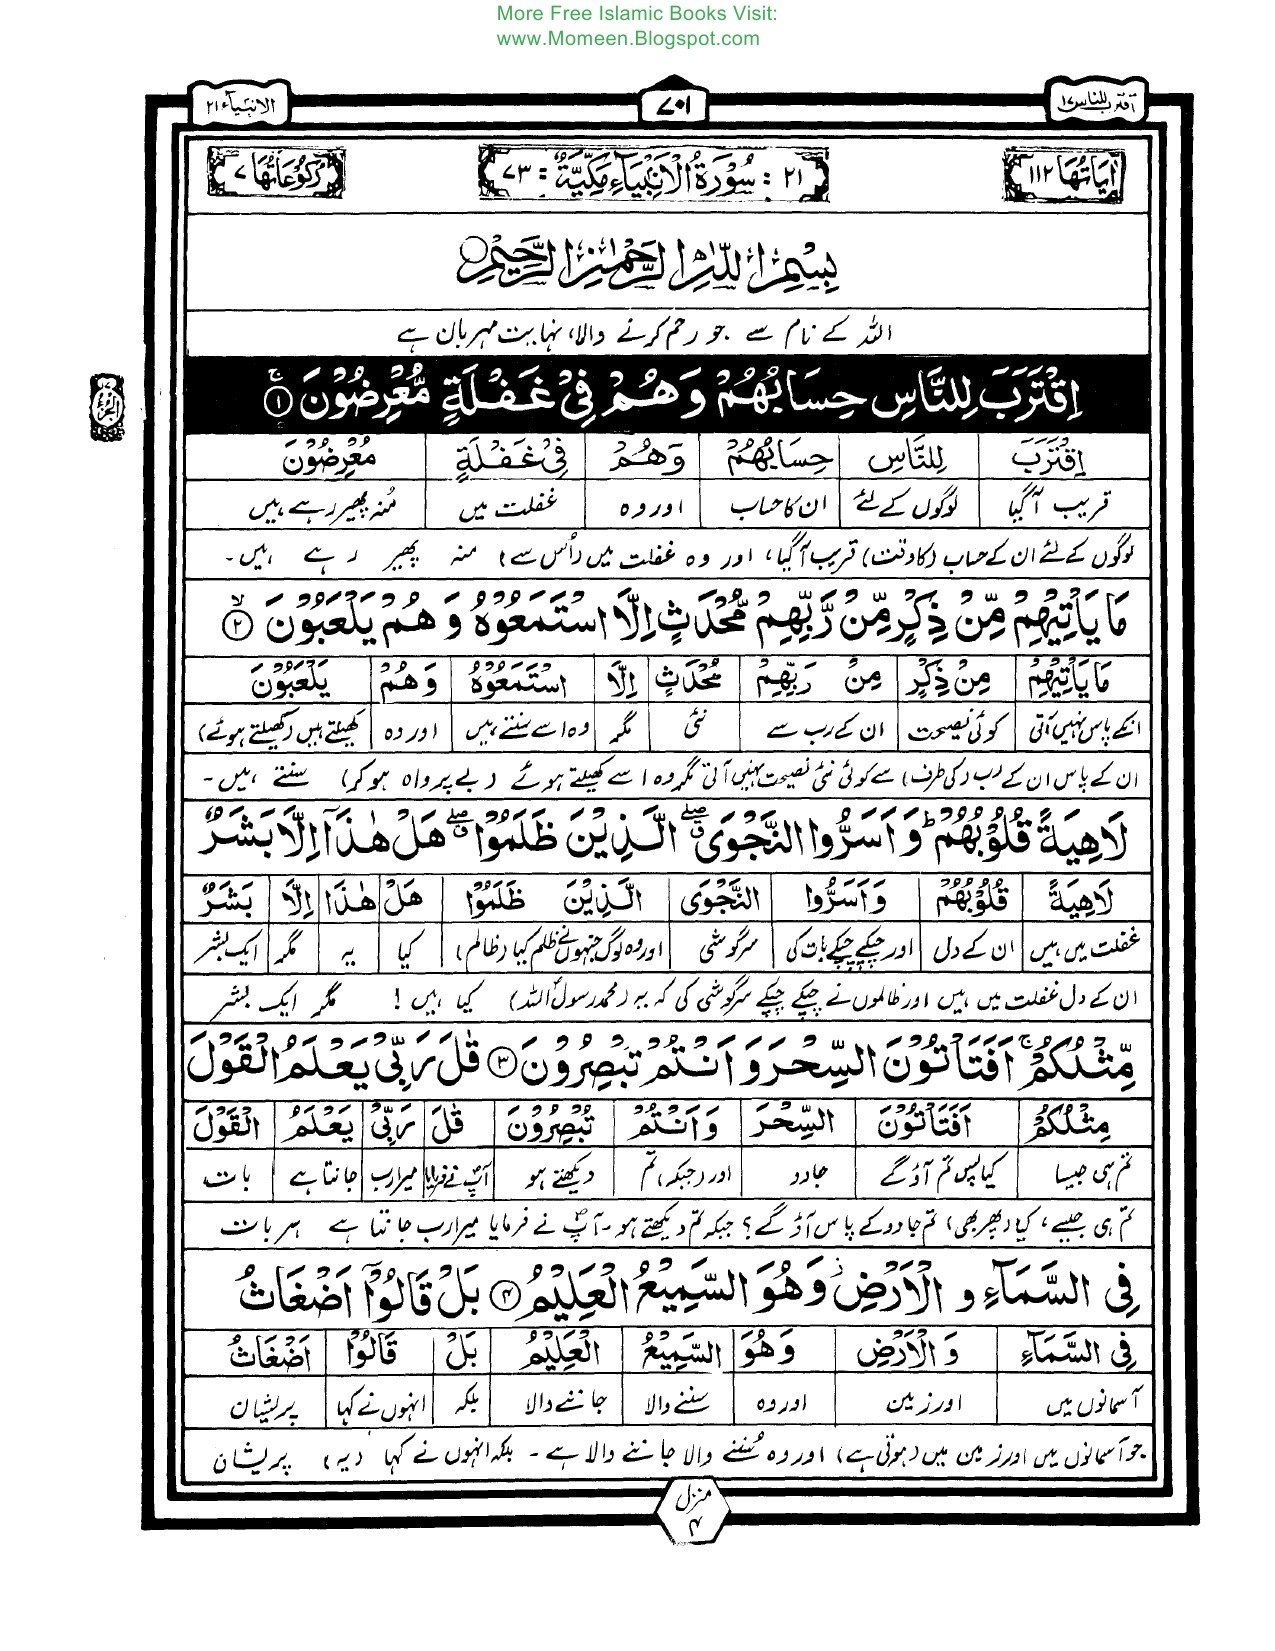 More Free Islamic Books Visit:
www.Momeen.Blogspot.com
اقترب للناس ۱۷
۷۰۱
الانبیاء ۲۱
اٰیَاتُهَا ۱۱۲
۲۱ : سُوْرَةُ الْاَنْۢبِیَآءِ مَكِّیَّةٌ : ۷۳
رُكُوْعَاتُهَا ۷
بِسْمِ اللّٰهِ الرَّحْمٰنِ الرَّحِیْمِ
اللہ کے نام سے جو رحم کرنے والا، نہایت مہربان ہے
اِقْتَرَبَ لِلنَّاسِ حِسَابُهُمْ وَهُمْ فِیْ غَفْلَةٍ مُّعْرِضُوْنَ ۚ ۱
اِقْتَرَبَ لِلنَّاسِ حِسَابُهُمْ وَهُمْ فِیْ غَفْلَةٍ مُعْرِضُوْنَ
قریب آگیا لوگوں کے لئے ان کا حساب اور وہ غفلت میں مُنہ پھیر رہے ہیں
لوگوں کے لئے ان کے حساب (کا وقت) قریب آگیا، اور وہ غفلت میں (اُس سے) منہ پھیر رہے ہیں۔
مَا یَاْتِیْهِمْ مِّنْ ذِكْرٍ مِّنْ رَّبِّهِمْ مُّحْدَثٍ اِلَّا اسْتَمَعُوْهُ وَهُمْ یَلْعَبُوْنَ ۙ ۲
مَا یَاْتِیْهِمْ مِنْ ذِكْرٍ مِنْ رَبِّهِمْ مُحْدَثٍ اِلَّا اسْتَمَعُوْهُ وَهُمْ یَلْعَبُوْنَ
انکے پاس نہیں آتی کوئی نصیحت ان کے رب سے نئی مگر وہ اسے سنتے ہیں اور وہ کھیلتے ہیں (کھیلتے ہوئے)
ان کے پاس ان کے رب (کی طرف) سے کوئی نئی نصیحت نہیں آتی مگر وہ اسے کھیلتے ہوئے (بے پرواہ ہو کر) سنتے ہیں۔
لَاهِیَةً قُلُوْبُهُمْ ؕ وَاَسَرُّوا النَّجْوَی ۖۗ الَّذِیْنَ ظَلَمُوْا ۖۗ هَلْ هٰذَاۤ اِلَّا بَشَرٌ
لَاهِیَةً قُلُوْبُهُمْ وَاَسَرُّوا النَّجْوَی الَّذِیْنَ ظَلَمُوْا هَلْ هٰذَا اِلَّا بَشَرٌ
غفلت میں ہیں ان کے دل اور چپکے چپکے بات کی سرگوشی اور وہ لوگ جنہوں نے ظلم کیا (ظالم) کیا یہ مگر ایک بشر
ان کے دل غفلت میں ہیں اور ظالموں نے چپکے چپکے سرگوشی کی کہ یہ (محمد رسول اللہ) کیا ہیں! مگر ایک بشر
مِّثْلُكُمْ ۚ اَفَتَاْتُوْنَ السِّحْرَ وَاَنْتُمْ تُبْصِرُوْنَ ۳ قٰلَ رَبِّیْ یَعْلَمُ الْقَوْلَ
مِثْلُكُمْ اَفَتَاْتُوْنَ السِّحْرَ وَاَنْتُمْ تُبْصِرُوْنَ قٰلَ رَبِّیْ یَعْلَمُ الْقَوْلَ
تم ہی جیسا کیا پس تم آؤ گے جادو اور (جبکہ) تم دیکھتے ہو آپؐ نے فرمایا میرا رب جانتا ہے بات
تم ہی جیسے، کیا (پھر بھی) تم جادو کے پاس آؤ گے؟ جبکہ تم دیکھتے ہو۔ آپؐ نے فرمایا میرا رب جانتا ہے ہر بات
فِی السَّمَآءِ وَ الْاَرْضِ ؗ وَهُوَ السَّمِیْعُ الْعَلِیْمُ ۴ بَلْ قَالُوْۤا اَضْغَاثُ
فِی السَّمَآءِ وَ الْاَرْضِ وَهُوَ السَّمِیْعُ الْعَلِیْمُ بَلْ قَالُوْا اَضْغَاثُ
آسمانوں میں اور زمین اور وہ سننے والا جاننے والا بلکہ انہوں نے کہا پریشان
جو آسمانوں میں اور زمین میں (ہوتی ہے) اور وہ سُننے والا جاننے والا ہے۔ بلکہ انہوں نے کہا (یہ) پریشان
منزل
۴